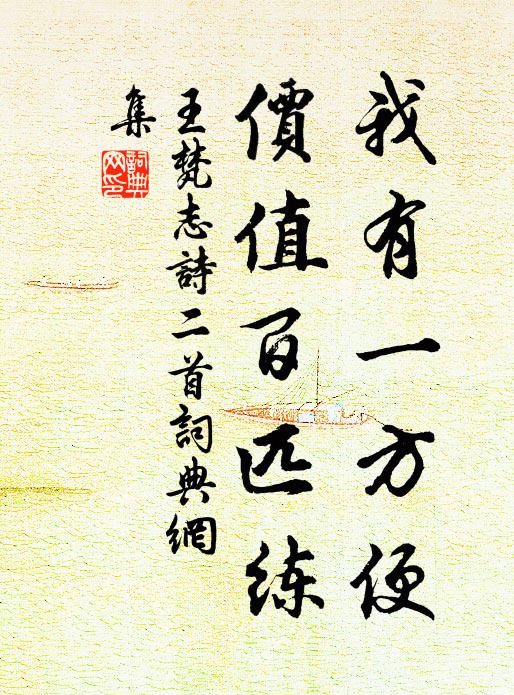 我有一方便
價值百匹練
王梵志詩二首詞典網
集
詞典
网印